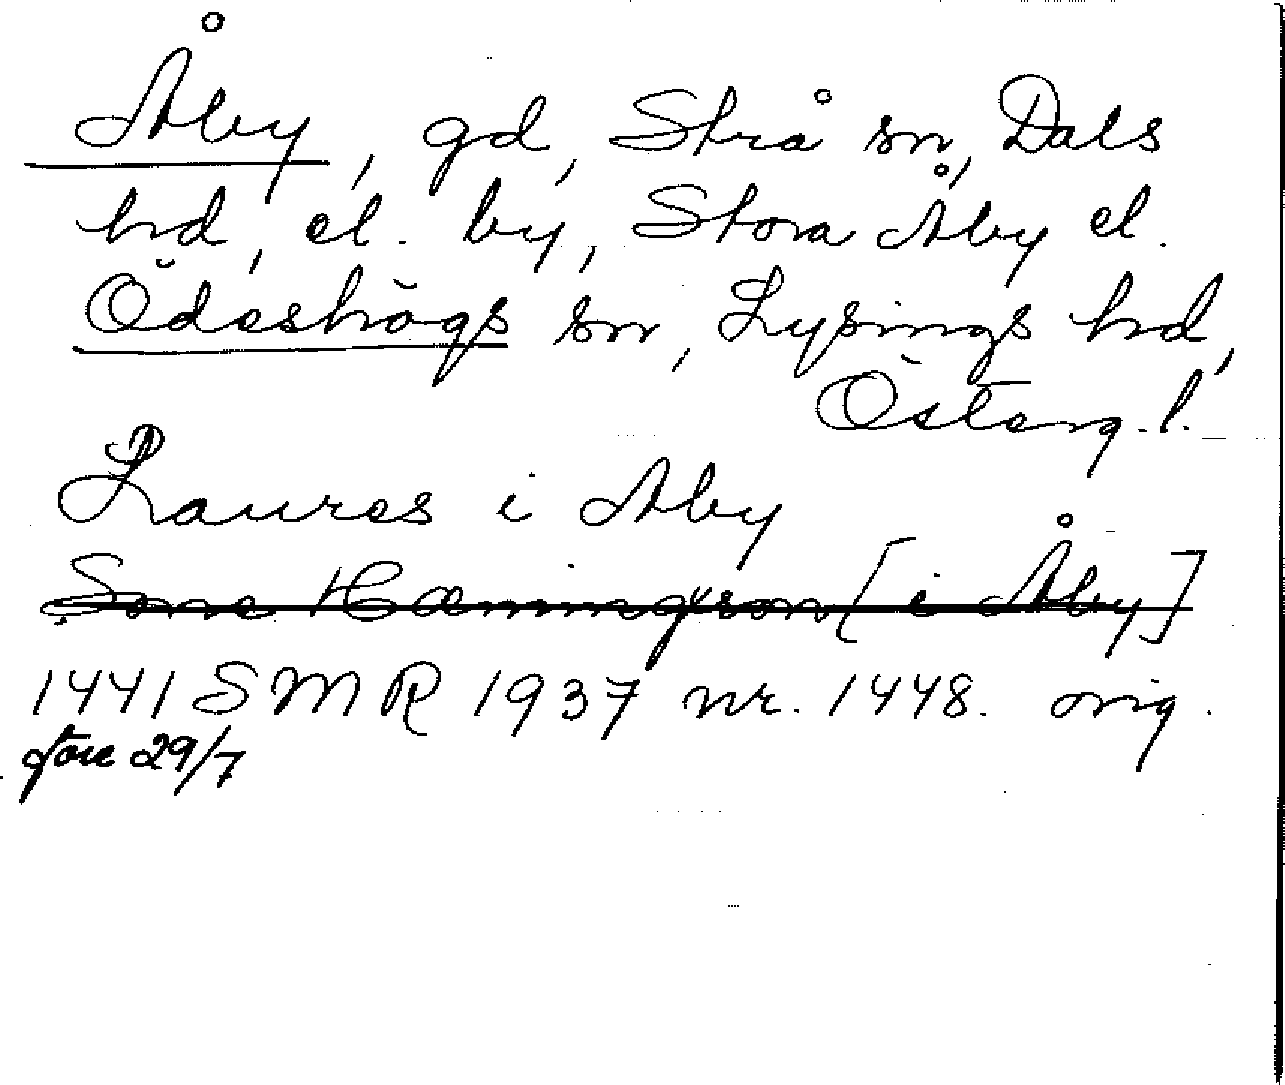 Åby, gd, Strå sn, Dals
hd, el. by, Stora Åby el.
Ödeshögs sn, Lysings hd,
Österg.l.
Laures i Aby
Sone Hæmingxson [i Åby]
1441 SMR 1937 nr. 1448. orig.
före 29/7